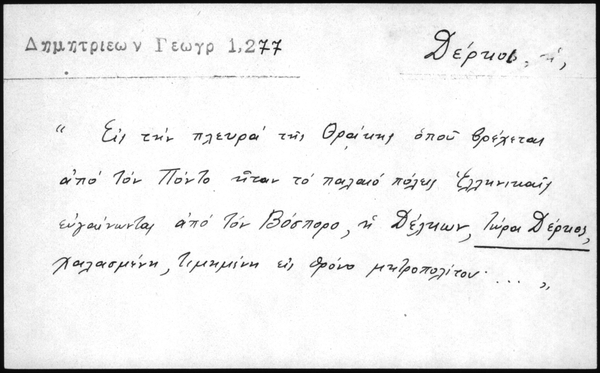 Δημητριεων Γεωγρ 1,277
Δέρκος, ἡ,
" Εἰς τήν πλευρά τῆς Θράκης ὁποῦ βρέχεται
ἀπό τόν Πόντο ἦταν τό παλαιό πόλεις ἑλληνικαῖς
εὐγαίνωντας ἀπό τόν Βόσπορο, ἡ Δέλκων, τώρα Δέρκος,
χαλασμένη, τιμημένη εἰς θρόνο μητροπολίτου ... "